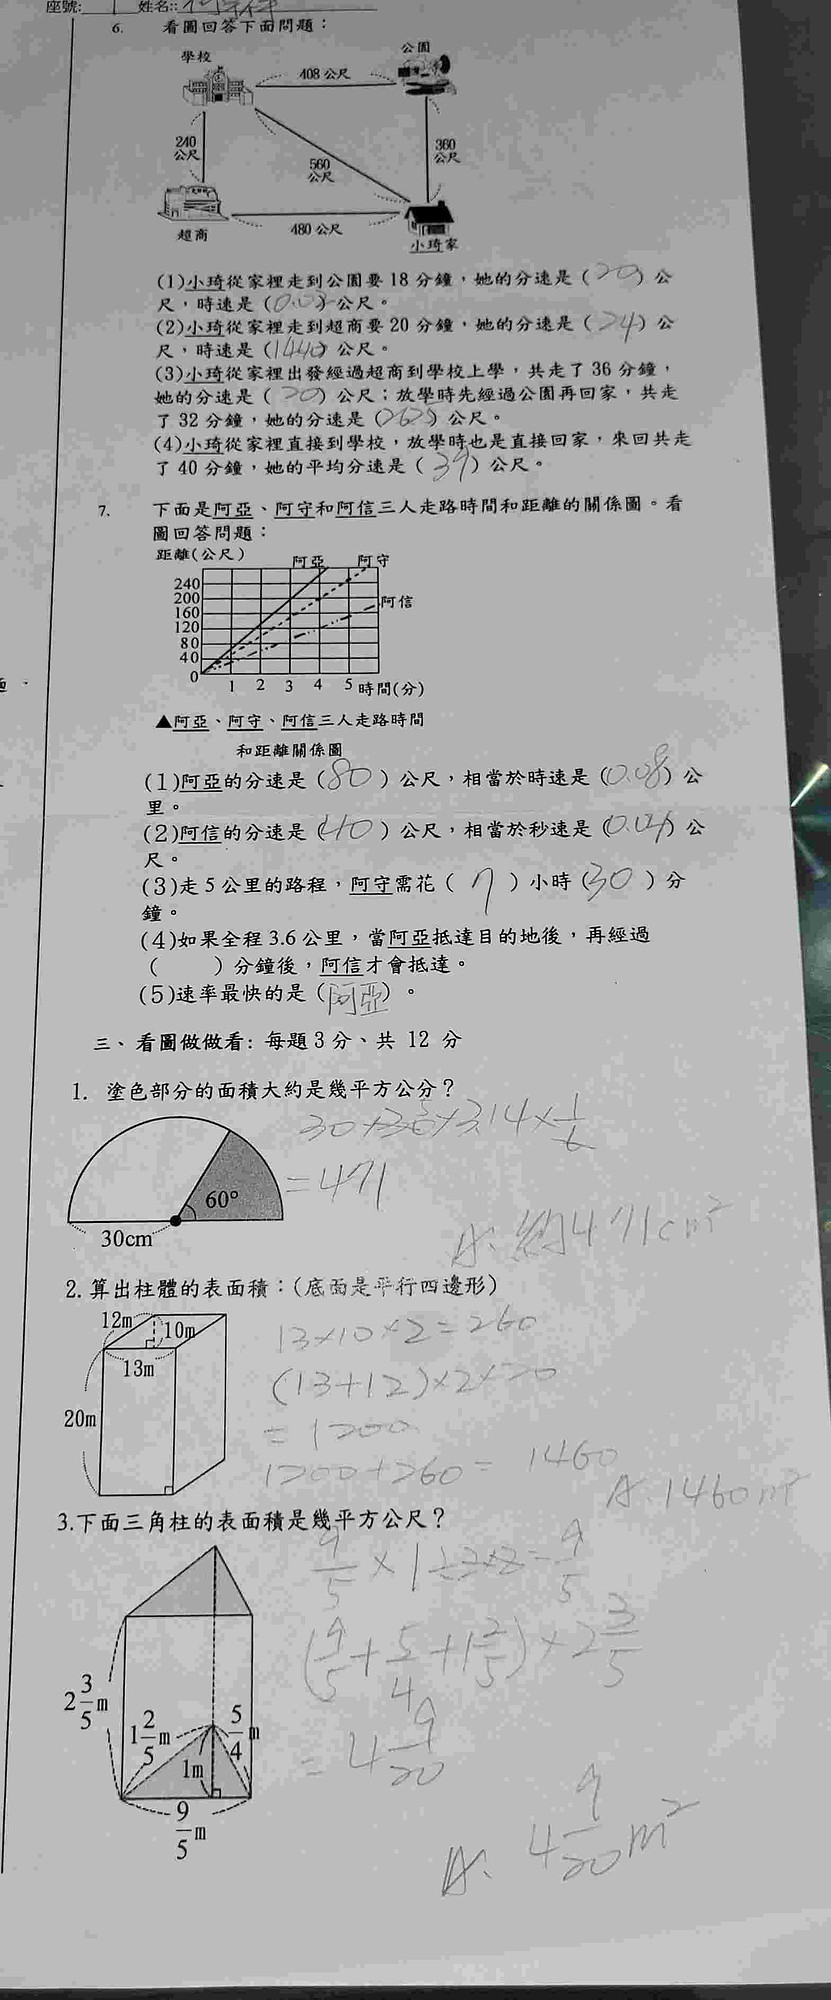 座號: 1 姓名::
6. 看圖回答下面問題：
學校
公園
408 公尺
240
公尺
560
公尺
360
公尺
超商
480 公尺
小琦家
(1)小琦從家裡走到公園要 18 分鐘，她的分速是（20）公
尺，時速是（0.02）公尺。
(2)小琦從家裡走到超商要 20 分鐘，她的分速是（24）公
尺，時速是（1440）公尺。
(3)小琦從家裡出發經過超商到學校上學，共走了 36 分鐘，
她的分速是（20）公尺；放學時先經過公園再回家，共走
了 32 分鐘，她的分速是（2625）公尺。
(4)小琦從家裡直接到學校，放學時也是直接回家，來回共走
了 40 分鐘，她的平均分速是（）公尺。
7. 下面是阿亞、阿守和阿信三人走路時間和距離的關係圖。看
圖回答問題：
距離(公尺)
阿亞
阿守
阿信
240
200
160
120
80
40
0
1 2 3 4 5 時間(分)
▲阿亞、阿守、阿信三人走路時間
和距離關係圖
(1)阿亞的分速是（80）公尺，相當於時速是（0.08）公
里。
(2)阿信的分速是（40）公尺，相當於秒速是（0.04）公
尺。
(3)走 5 公里的路程，阿守需花（7）小時（30）分
鐘。
(4)如果全程 3.6 公里，當阿亞抵達目的地後，再經過
（ ）分鐘後，阿信才會抵達。
(5)速率最快的是（阿亞）。
三、看圖做做看: 每題 3 分、共 12 分
1. 塗色部分的面積大約是幾平方公分？
60°
30cm
30×30×3.14×1/6
=471
A：約471cm²
2. 算出柱體的表面積：(底面是平行四邊形)
12m
10m
13m
20m
13×10×2=260
(13+12)×2×20
=1200
1200+260= 1460
A：1460m²
3.下面三角柱的表面積是幾平方公尺？
2 3/5 m
1 2/5 m
5/4 m
1m
9/5 m
9/5×1÷2×2=9/5
(9/5+5/4+1 2/5)×2 3/5
=4 9/20
A：4 9/20 m²